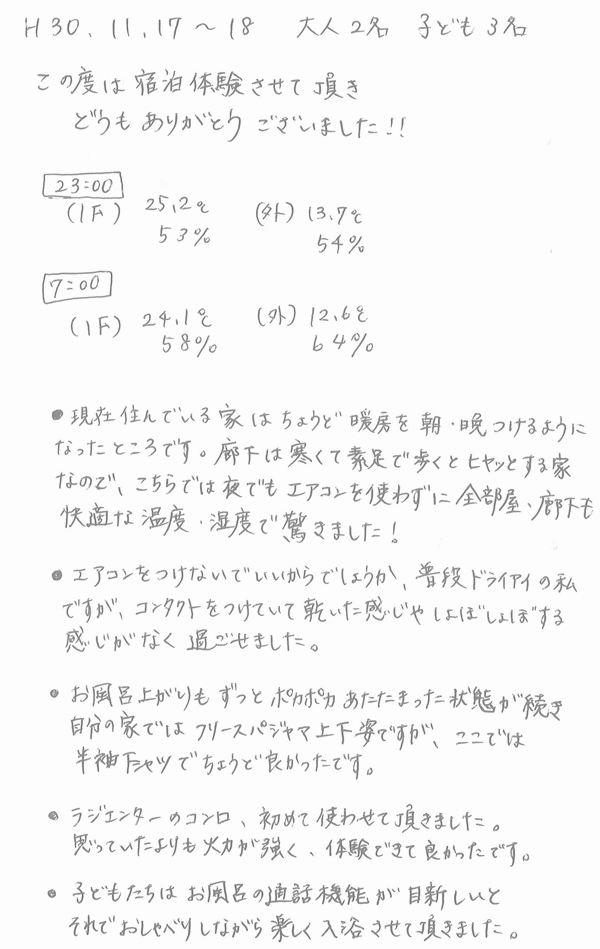 H30.11.17〜18 大人2名 子ども3名
この度は宿泊体験させて頂き
どうもありがとうございました!!
23:00
(1F) 25.2℃ (外) 13.7℃
53% 54%
7:00
(1F) 24.1℃ (外) 12.6℃
58% 64%
● 現在住んでいる家はちょうど暖房を朝・晩つけるように
なったところです。廊下は寒くて素足で歩くとヒヤッとする家
なので、こちらでは夜でもエアコンを使わずに全部屋・廊下も
快適な温度・湿度で驚きました!
● エアコンをつけないでいいからでしょうか、普段ドライアイの私
ですが、コンタクトをつけていて乾いた感じやしょぼしょぼする
感じがなく過ごせました。
● お風呂上がりもずっとポカポカあたたまった状態が続き
自分の家ではフリースパジャマ上下姿ですが、ここでは
半袖Tシャツでちょうど良かったです。
● ラジエンターのコンロ、初めて使わせて頂きました。
思っていたよりも火力が強く、体験できて良かったです。
● 子どもたちはお風呂の通話機能が目新しいと
それでおしゃべりしながら楽しく入浴させて頂きました。